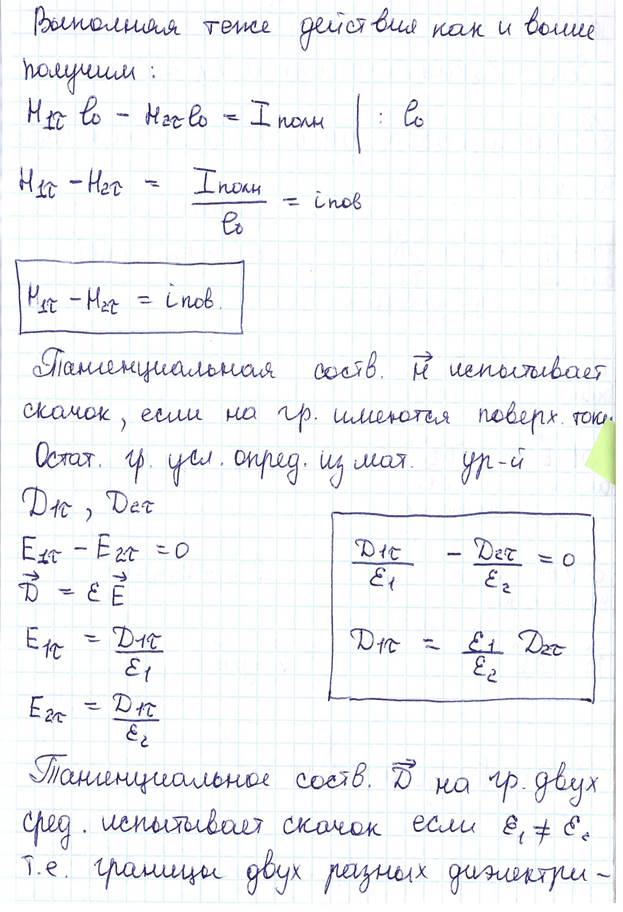 Выполняя теже действия как и выше
получим:
H₁τ l₀ − H₂τ l₀ = I полн | : l₀
H₁τ − H₂τ = I полн / l₀ = i пов
H₁τ − H₂τ = i пов.
Тангенциальная соств. H⃗ испытывает
скачок, если на гр. имеются поверх. токи.
Остат. гр. усл. опред. из мат. ур-й
D₁τ, D₂τ
E₁τ − E₂τ = 0
D⃗ = ε E⃗
E₁τ = D₁τ / ε₁
E₂τ = D₁τ / ε₂
D₁τ / ε₁ − D₂τ / ε₂ = 0
D₁τ = ε₁ / ε₂ D₂τ
Тангенциальное соств. D⃗ на гр. двух
сред. испытывает скачок если ε₁ ≠ ε₂
т.е. границы двух разных диэлектри-